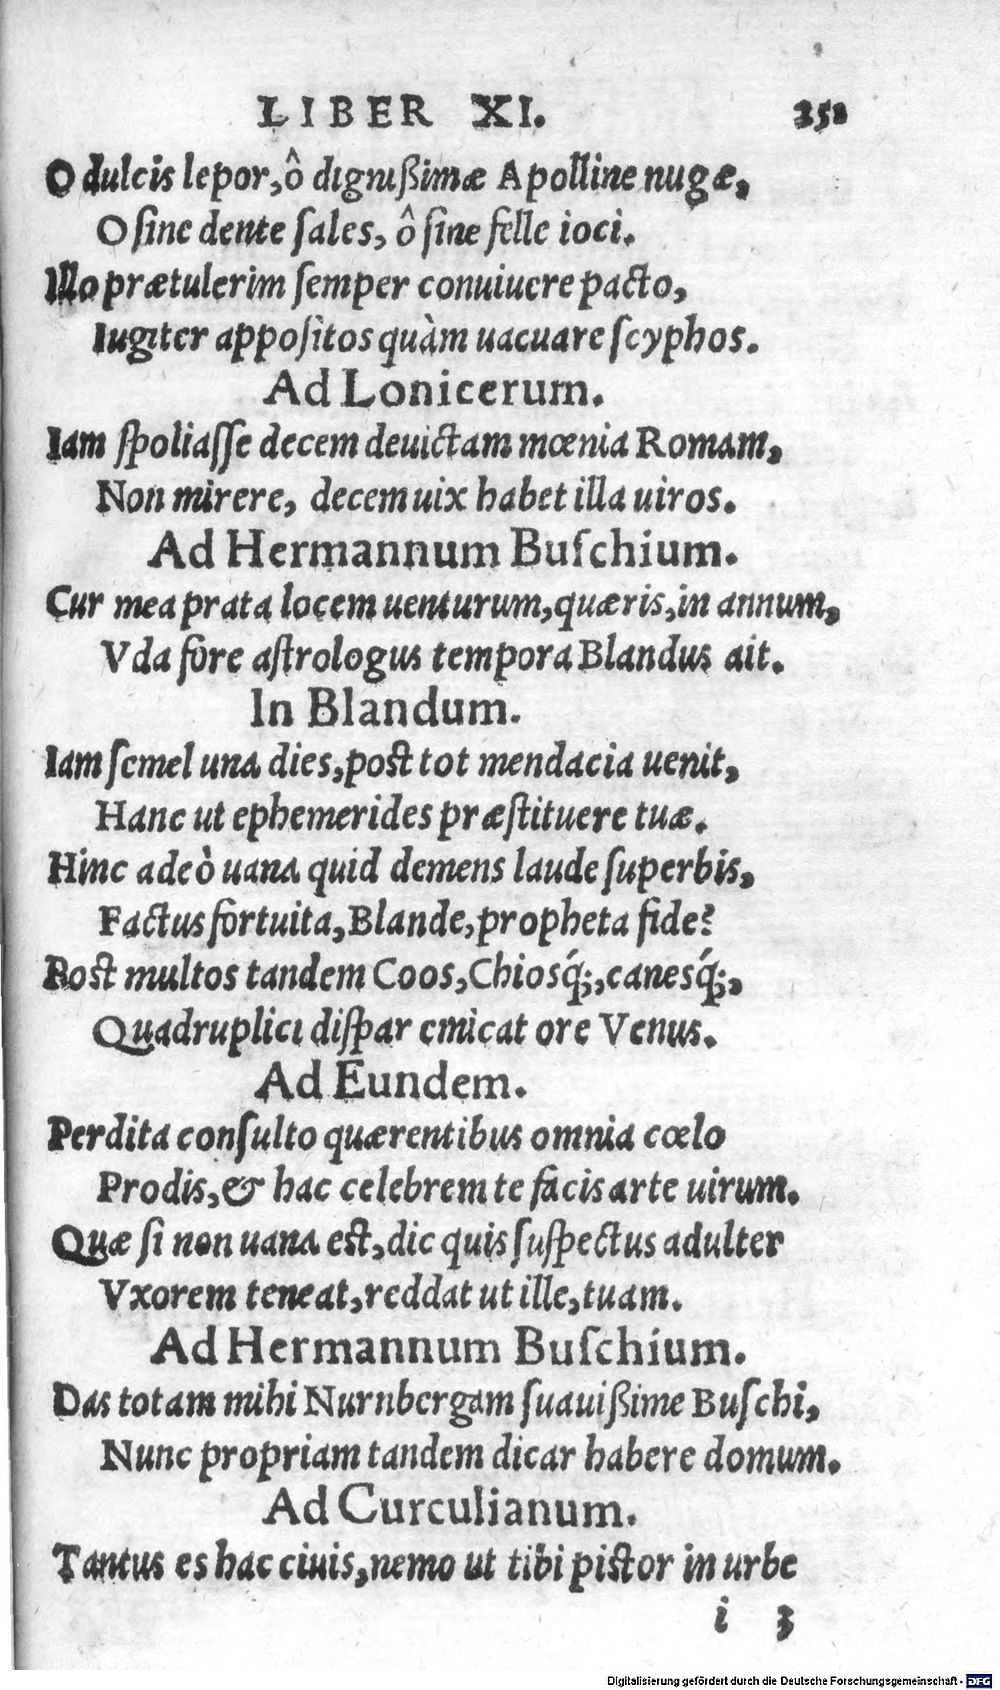 LIBER XI. 251
O dulcis lepor, ô dignißimæ Apolline nugæ,
O ſine dente ſales, ô ſine felle ioci.
Illo prætulerim ſemper conuiuere pacto,
Iugiter appoſitos quàm uacuare ſcyphos.
Ad Lonicerum.
Iam ſpoliaſſe decem deuictam mœnia Romam,
Non mirere, decem uix habet illa uiros.
Ad Hermannum Buſchium.
Cur mea prata locem uenturum, quæris, in annum,
Vda fore aſtrologus tempora Blandus ait.
In Blandum.
Iam ſemel una dies, poſt tot mendacia uenit,
Hanc ut ephemerides præſtituere tuæ.
Hinc adeò uana quid demens laude ſuperbis,
Factus fortuita, Blande, propheta fide?
Poſt multos tandem Coos, Chiosq́;, canesq́;,
Quadruplici diſpar emicat ore Venus.
Ad Eundem.
Perdita conſulto quærentibus omnia cœlo
Prodis, & hac celebrem te facis arte uirum.
Quæ ſi non uana eſt, dic quis ſuſpectus adulter
Vxorem teneat, reddat ut ille, tuam.
Ad Hermannum Buſchium.
Das totam mihi Nurnbergam ſuauißime Buſchi,
Nunc propriam tandem dicar habere domum.
Ad Curculianum.
Tantus es hac ciuis, nemo ut tibi piſtor in urbe
i 3
Digitalisierung gefördert durch die Deutsche Forschungsgemeinschaft - DFG